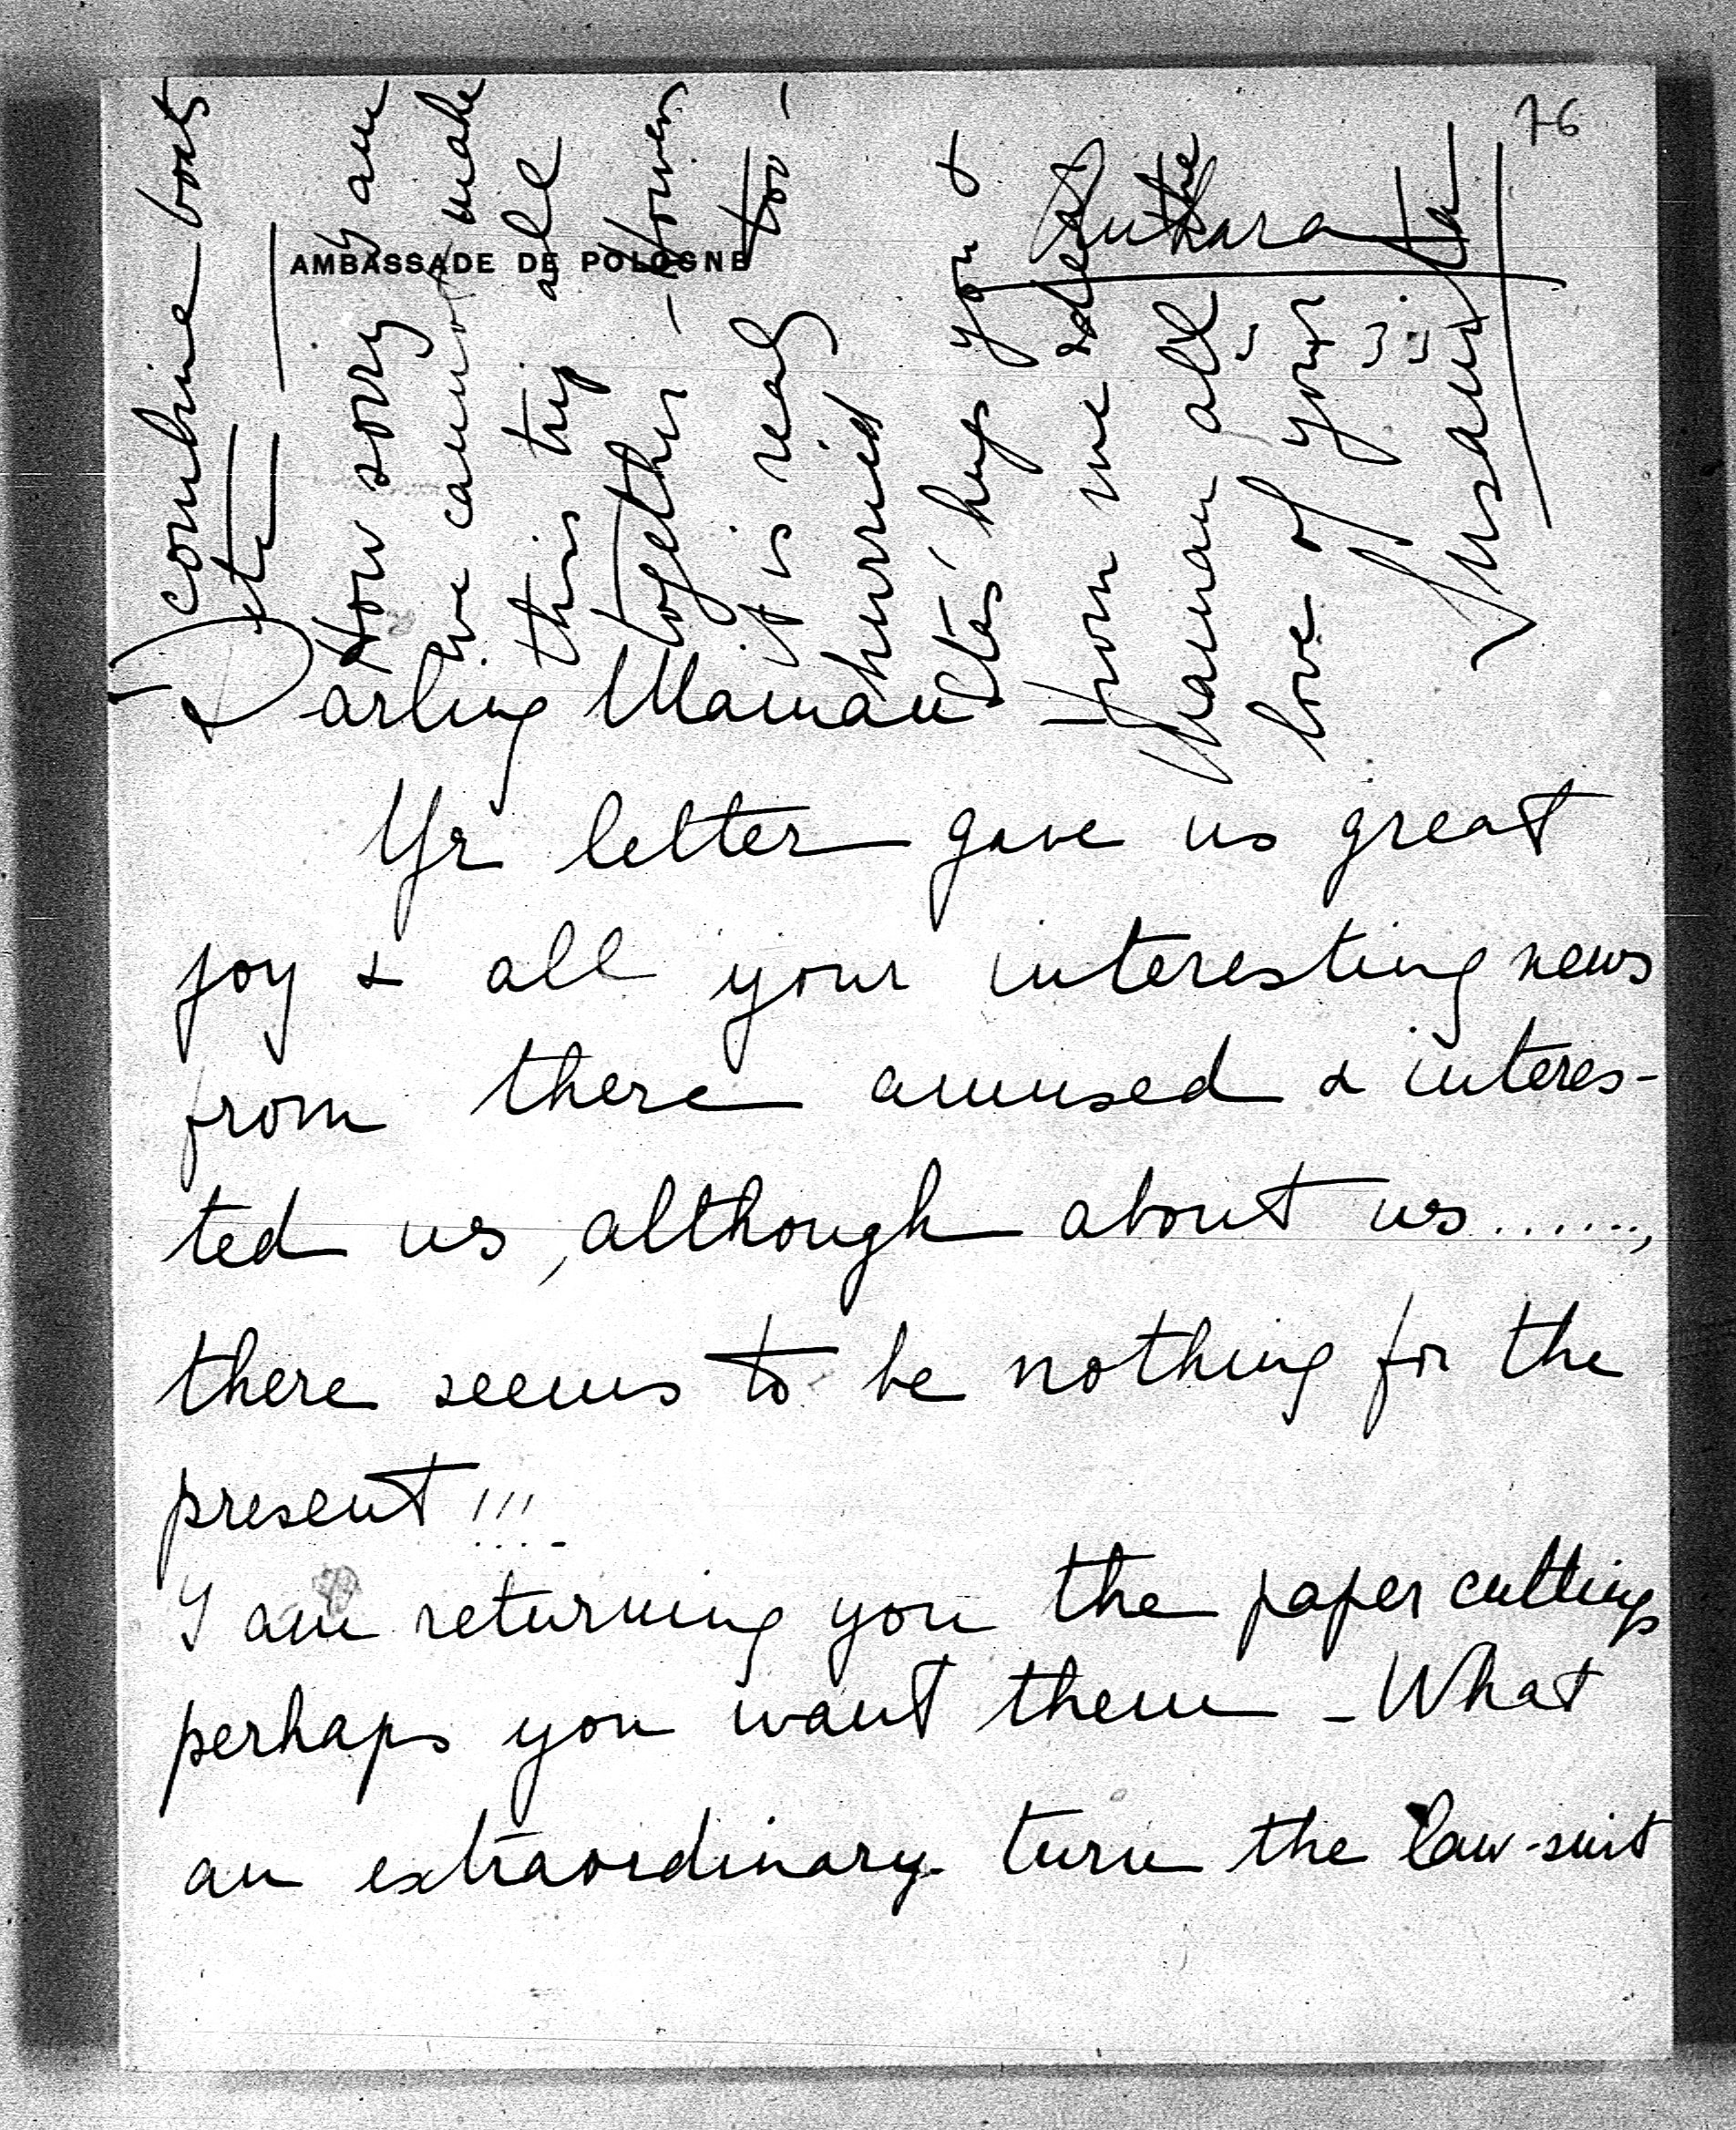 76
AMBASSADE DE POLOGNE
Ankara
Darling Maman
Yr letter gave us great
joy & all your interesting news
from there amused & interes-
ted us, although about us.......,
there seems to be nothing for the
present!!!
I am returning you the paper cuttings
perhaps you want them - What
an extraordinary turn the law-suit
combine boats
etc
How sorry I am
we cannot make
this trip all
together -
it is really too -
hurried
Stas' hugs you &
from me dear
Maman all the
love of your
Susanita